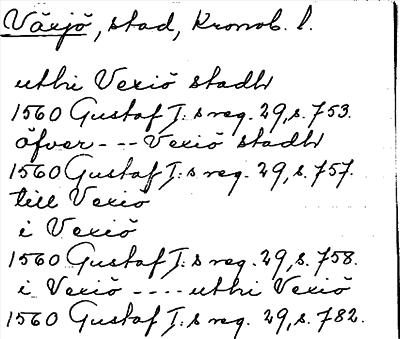 Växjö, stad, Kronob. l.
uthi Vexiö stadh
1560 Gustaf I:s reg. 29, s. 753.
öfver --- Vexiö stadh
1560 Gustaf I:s reg. 29, s. 757.
till Vexiö
i Vexiö
1560 Gustaf I:s reg. 29, s. 758.
i Vexiö ---- uthi Vexiö
1560 Gustaf I:s reg. 29, s. 782.